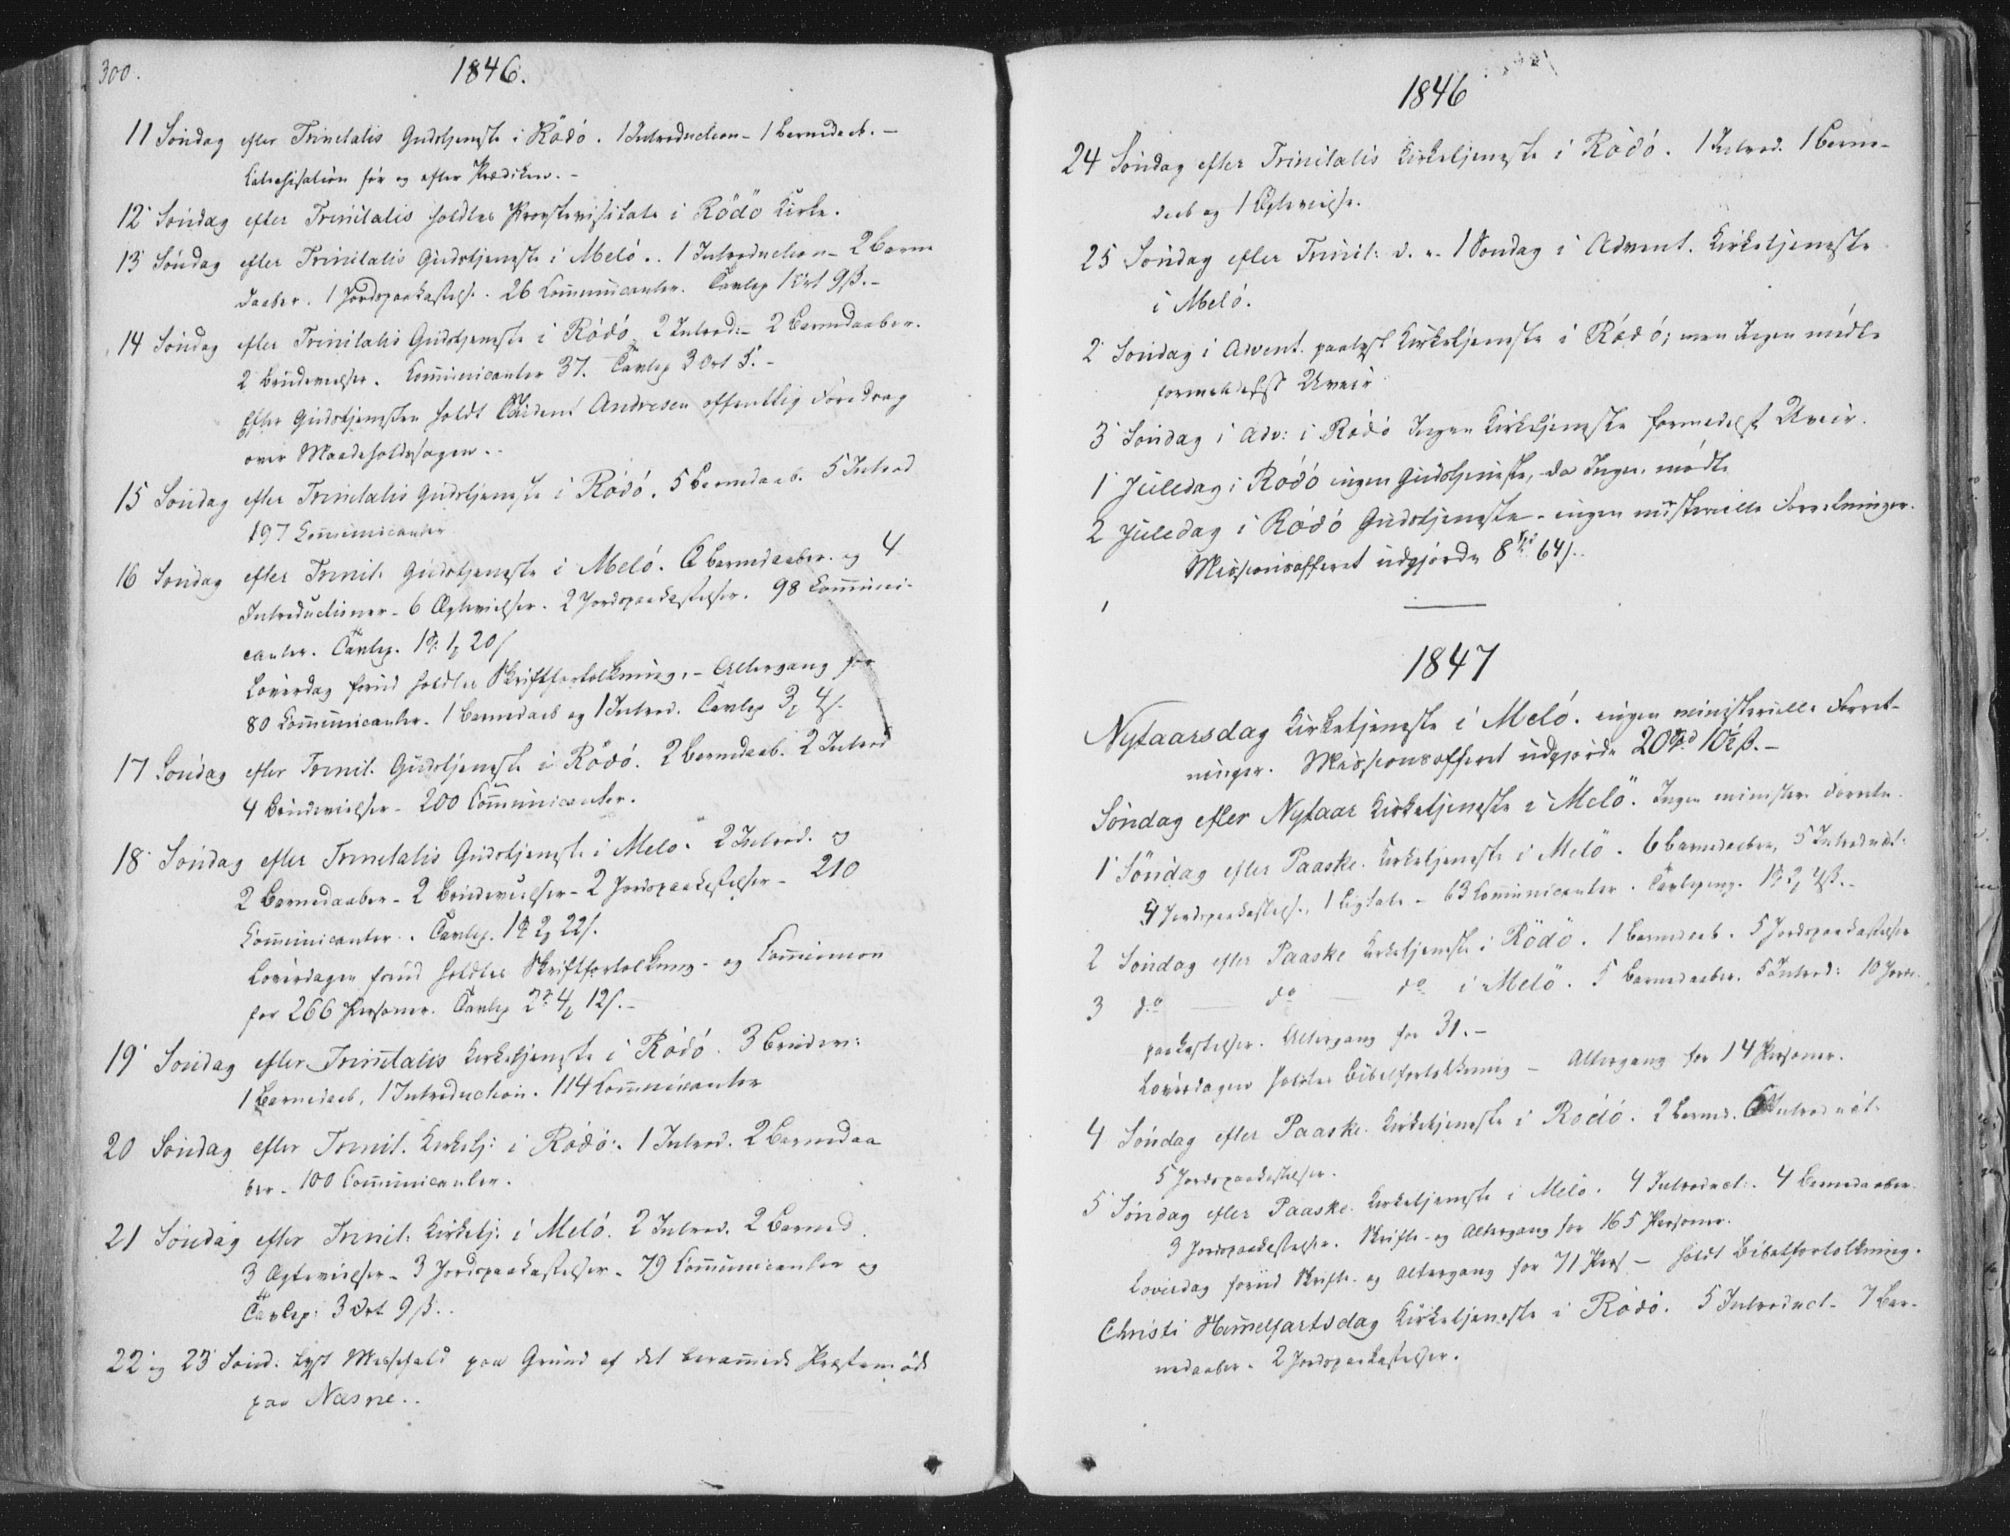 300.
1846.
11 Søndag efter Trinitatis Gudstjeneste i Rödö. 1 Introduction - 1 Barnedaab. -
Catechisation før og efter Prædiken. -
12 Søndag efter Trinitatis holdtes Provstevisitats i Rödö Kirke.
13 Søndag efter Trinitatis Gudstjeneste i Melö. 1 Introduction - 2 Barne
daaber. 1 Jordspaakastelse. 26 Communicanter. Tavlep 1 Ort 9 ß. -
14 Søndag efter Trinitatis Gudstjeneste i Rödö 2 Introd: - 2 Barnedaaber.
2 Brudevielser. Communicanter 37. Tavlep 3 Ort
Efter Gudstjenesten holdt Andresen offentlig Foredrag
over Maadeholdssagen.
15 Søndag efter Trinitatis Gudstjeneste i Rödö. 5 Barnedaab. 5 Introd
197 Communicanter
16 Søndag efter Trinit. Gudstjeneste i Melö. 6 Barnedaaber og 4
Introductioner - 6 Ægtevielser. 2 Jordspaakastelser. 98 Communi-
canter. Tavlep.
Løverdag forud holdtes Skriftfortolkning. - Altergang for
80 Communicanter. 1 Barnedaab og 1 Introd. Tavlep
17 Søndag efter Trinit. Gudstjeneste i Rödö. 2 Barnedaab. 2 Introd
4 Brudevielser - 200 Communicanter.
18 Søndag efter Trinitatis Gudstjeneste i Melö. 2 Introd. og
2 Barnedaaber - 2 Brudevielser - 2 Jordspaakastelser - 210
Communicanter. Tavlep.
Løverdagen forud holdtes Skriftfortolkning - og Communion
for 266 Personer. Tavlep
19 Søndag efter Trinitatis Kirketjeneste i Rödö. 3 Brudev:
1 Barnedaab, 1 Introduction. 114 Communicanter
20 Søndag efter Trinit. Kirketj: i Rödö. 1 Introd. 2 Barnedaa
ber - 100 Communicanter.
21 Søndag efter Trinit. Kirketj. i Melö. 2 Introd. 2 Barned.
3 Ægtevielser - 3 Jordspaakastelser - 79 Communicanter og
Tavlep: 3 Ort 9 ß.
22 og 23 Sønd. lyst Messefald paa Grund af det berammede Præstemöde
paa Næsne.
1846
24 Søndag efter Trinitatis Kirketjeneste i Rödö. 1 Introd. 1 Barne-
daab og 1 Ægtevielse.
25 Søndag efter Trinit: d. e. 1 Søndag i Advent. Kirketjeneste
i Melö.
2 Søndag i Advent. paalyst Kirketjeneste i Rödö; men Ingen mødte
formedelst Uveir
3 Søndag i Adv: i Rödö Ingen Kirketjeneste formedelst Uveir.
1 Juledag i Rödö ingen Gudstjeneste, da Ingen mødte
2 Juledag i Rödö Gudstjeneste - ingen ministerielle Forretninger.
Missionsofferet udgjorde 8
1847
Nytaarsdag Kirketjeneste i Melö. ingen ministerielle Forret-
ninger. Missionsofferet udgjorde 20
Søndag efter Nytaar Kirketjeneste i Melö. Ingen minister. Forretn.
1 Søndag efter Paaske. Kirketjeneste i Melö. 6 Barnedaaber, 5 Introduct:
4 Jordspaakastelse, 1 Ligtale - 63 Communicanter. Tavlepeng.
2 Søndag efter Paaske Kirketjeneste i Rödö. 1 Barnedaab. 5 Jordspaakastelser
3 do — do — do i Melö. 5 Barnedaaber. 5 Introd: 10 Jords-
paakastelser. Altergang for 31. -
Løverdagen holdtes Bibelfortolkning - Altergang for 14 Personer.
4 Søndag efter Paaske. Kirketjeneste i Rödö. 2 Barned. 6 Introduct.
5 Jordspaakastelser.
5 Søndag efter Paaske. Kirketjeneste i Melö. 4 Introduct. 4 Barnedaaber.
3 Jordspaakastelser. Skrifte- og Altergang for 165 Personer.
Løverdag forud Skrifte- og Altergang for 71 Pers - holdt Bibelfortolkning.
Christi Himmelfartsdag Kirketjeneste i Rödö. 5 Introduct. 7 Bar-
nedaaber. 2 Jordspaakastelser.